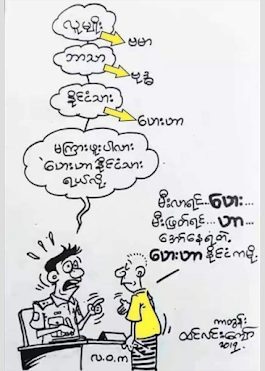 လူမျိုး
ဗမာ
ဘာသာ
ဗုဒ္ဓ
နိုင်ငံသား
ဟေးဟာ
မကြားဖူးပါလား
'ဟေးဟာ' နိုင်ငံသား
ရယ်လို့
မီးလာရင်... ဟေး...
မီးပြတ်ရင်... ဟာ...
အော်နေရတဲ့
ဟေးဟာ နိုင်ငံကမို့
ကာတွန်း
ထင်လင်းကျော်
၂၀၁၉
လ.ဝ.က